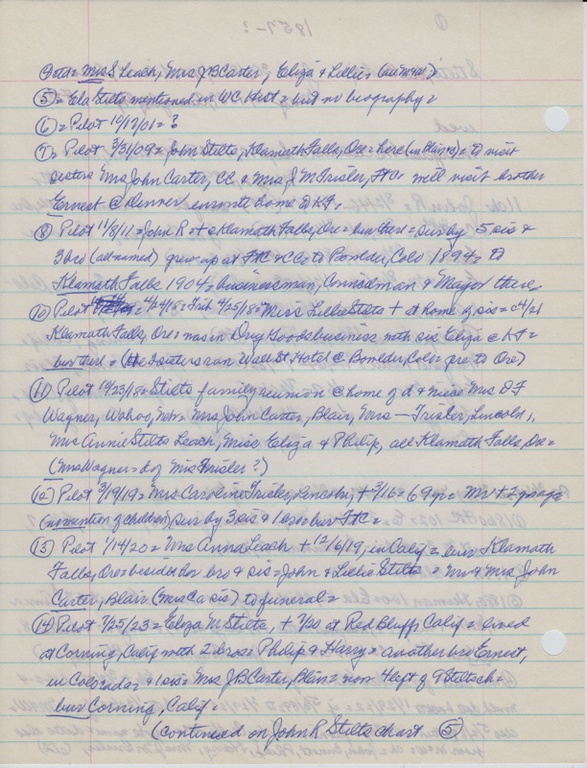 Mrs S Leach, Mrs J B Carter, Eliza & Lillie
⑤ = Ela Stilts mentioned in WC Hist = but no biography =
⑥ = Pilot 10/17/01 = ?
⑦ = Pilot 9/3/09 = John Stilts, Klamath Falls, Ore = here (in Blair) = to visit
sisters Mrs John Carter, CC & Mrs J M Trisler, FtC = will visit brother
Ernest @ Denver enroute home to K F =
⑧ Pilot 11/8/11 = John R = + @ Klamath Falls, Ore = bur there = sur by 5 sis &
3 bro (all named) grew up at FtC & CC = to Boulder, Colo 1894 = to
Klamath Falls 1904 = businessman, Councilman & Mayor there
⑩ Pilot 4/24/18 = Trib 4/25/18 = Miss Lillie Stilts + at home of sis = 4/21
Klamath Falls, Ore = was in Dry Goods business with sis Eliza @ K F =
bur there = (the sisters ran Wall St Hotel @ Boulder, Colo = pre to Ore)
⑪ Pilot 10/23/18 = Stilts family reunion @ home of d & niece Mrs D F
Wagner, Wahoo, Nebr = Mrs John Carter, Blair, Mrs — Trisler, Lincoln,
Mrs Annie Stilts Leach, Miss Eliza & Philip, all Klamath Falls, Ore =
(Mrs Wagner = d of Mrs Trisler?)
⑫ Pilot 3/19/19 = Mrs Caroline Trisler, Lincoln, + 3/16 = 69 yr =
(no mention of children) sur by 3 sis & 1 bro = bur FtC =
⑬ Pilot 1/14/20 = Mrs Anna Leach + 12/6/19, in Calif = bur Klamath
Falls, Ore = beside her bro & sis = John & Lillie Stilts = Mr & Mrs John
Carter, Blair (Mrs C a sis) to funeral =
⑭ Pilot 7/25/23 = Eliza M Stilts, + 7/20 at Red Bluff, Calif = lived
at Corning, Calif with 2 bros = Philip & Harry = another bro Ernest,
in Colorado = & 1 sis = Mrs J B Carter, Blair = now 4 left of 9 Stilts ch =
bur Corning, Calif =
(continued on John R Stilts chart ⑤)